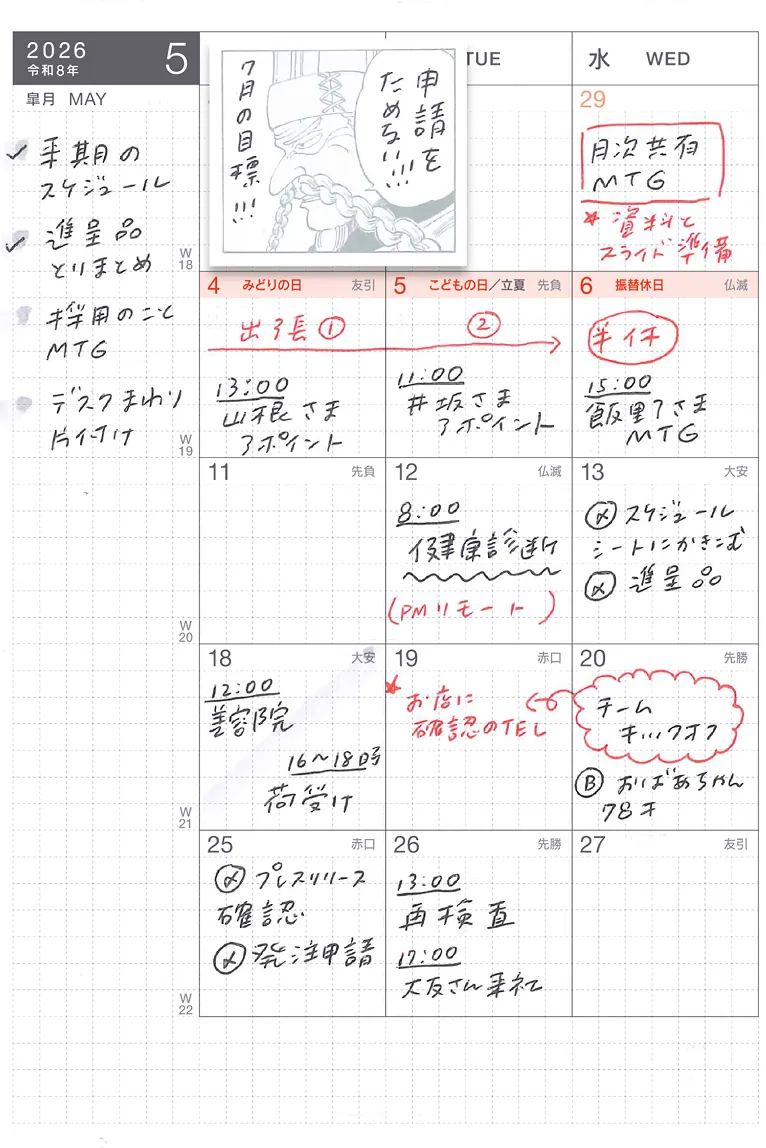 2026
令和8年
5
TUE
水 WED
皐月 MAY
来期の
スケジュール
進呈品
とりまとめ
採用のこと
MTG
デスクまわり
片付け
7月の目標!!!
申請を
ためない!!!
29
月次共有
MTG
★資料と
スライド準備
W
18
4 みどりの日 友引
出張①
13:00
山根さま
アポイント
5 こどもの日/立夏 先負
②
11:00
井坂さま
アポイント
6 振替休日 仏滅
半休
15:00
飯野さま
MTG
W
19
11 先負
12 仏滅
8:00
健康診断
(PMリモート)
13 大安
〆スケジュール
シートにかきこむ
〆進呈品
W
20
18 大安
12:00
美容院
16~18時
荷受け
19 赤口
★お店に
確認のTEL
20 先勝
チーム
キックオフ
Ⓑおばあちゃん
78才
W
21
25 赤口
〆プレスリリース
確認
〆発注申請
26 先勝
13:00
再検査
17:00
大友さん来社
27 友引
W
22